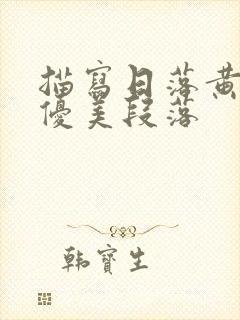 描寫日落黃
優美段落
韩寶生